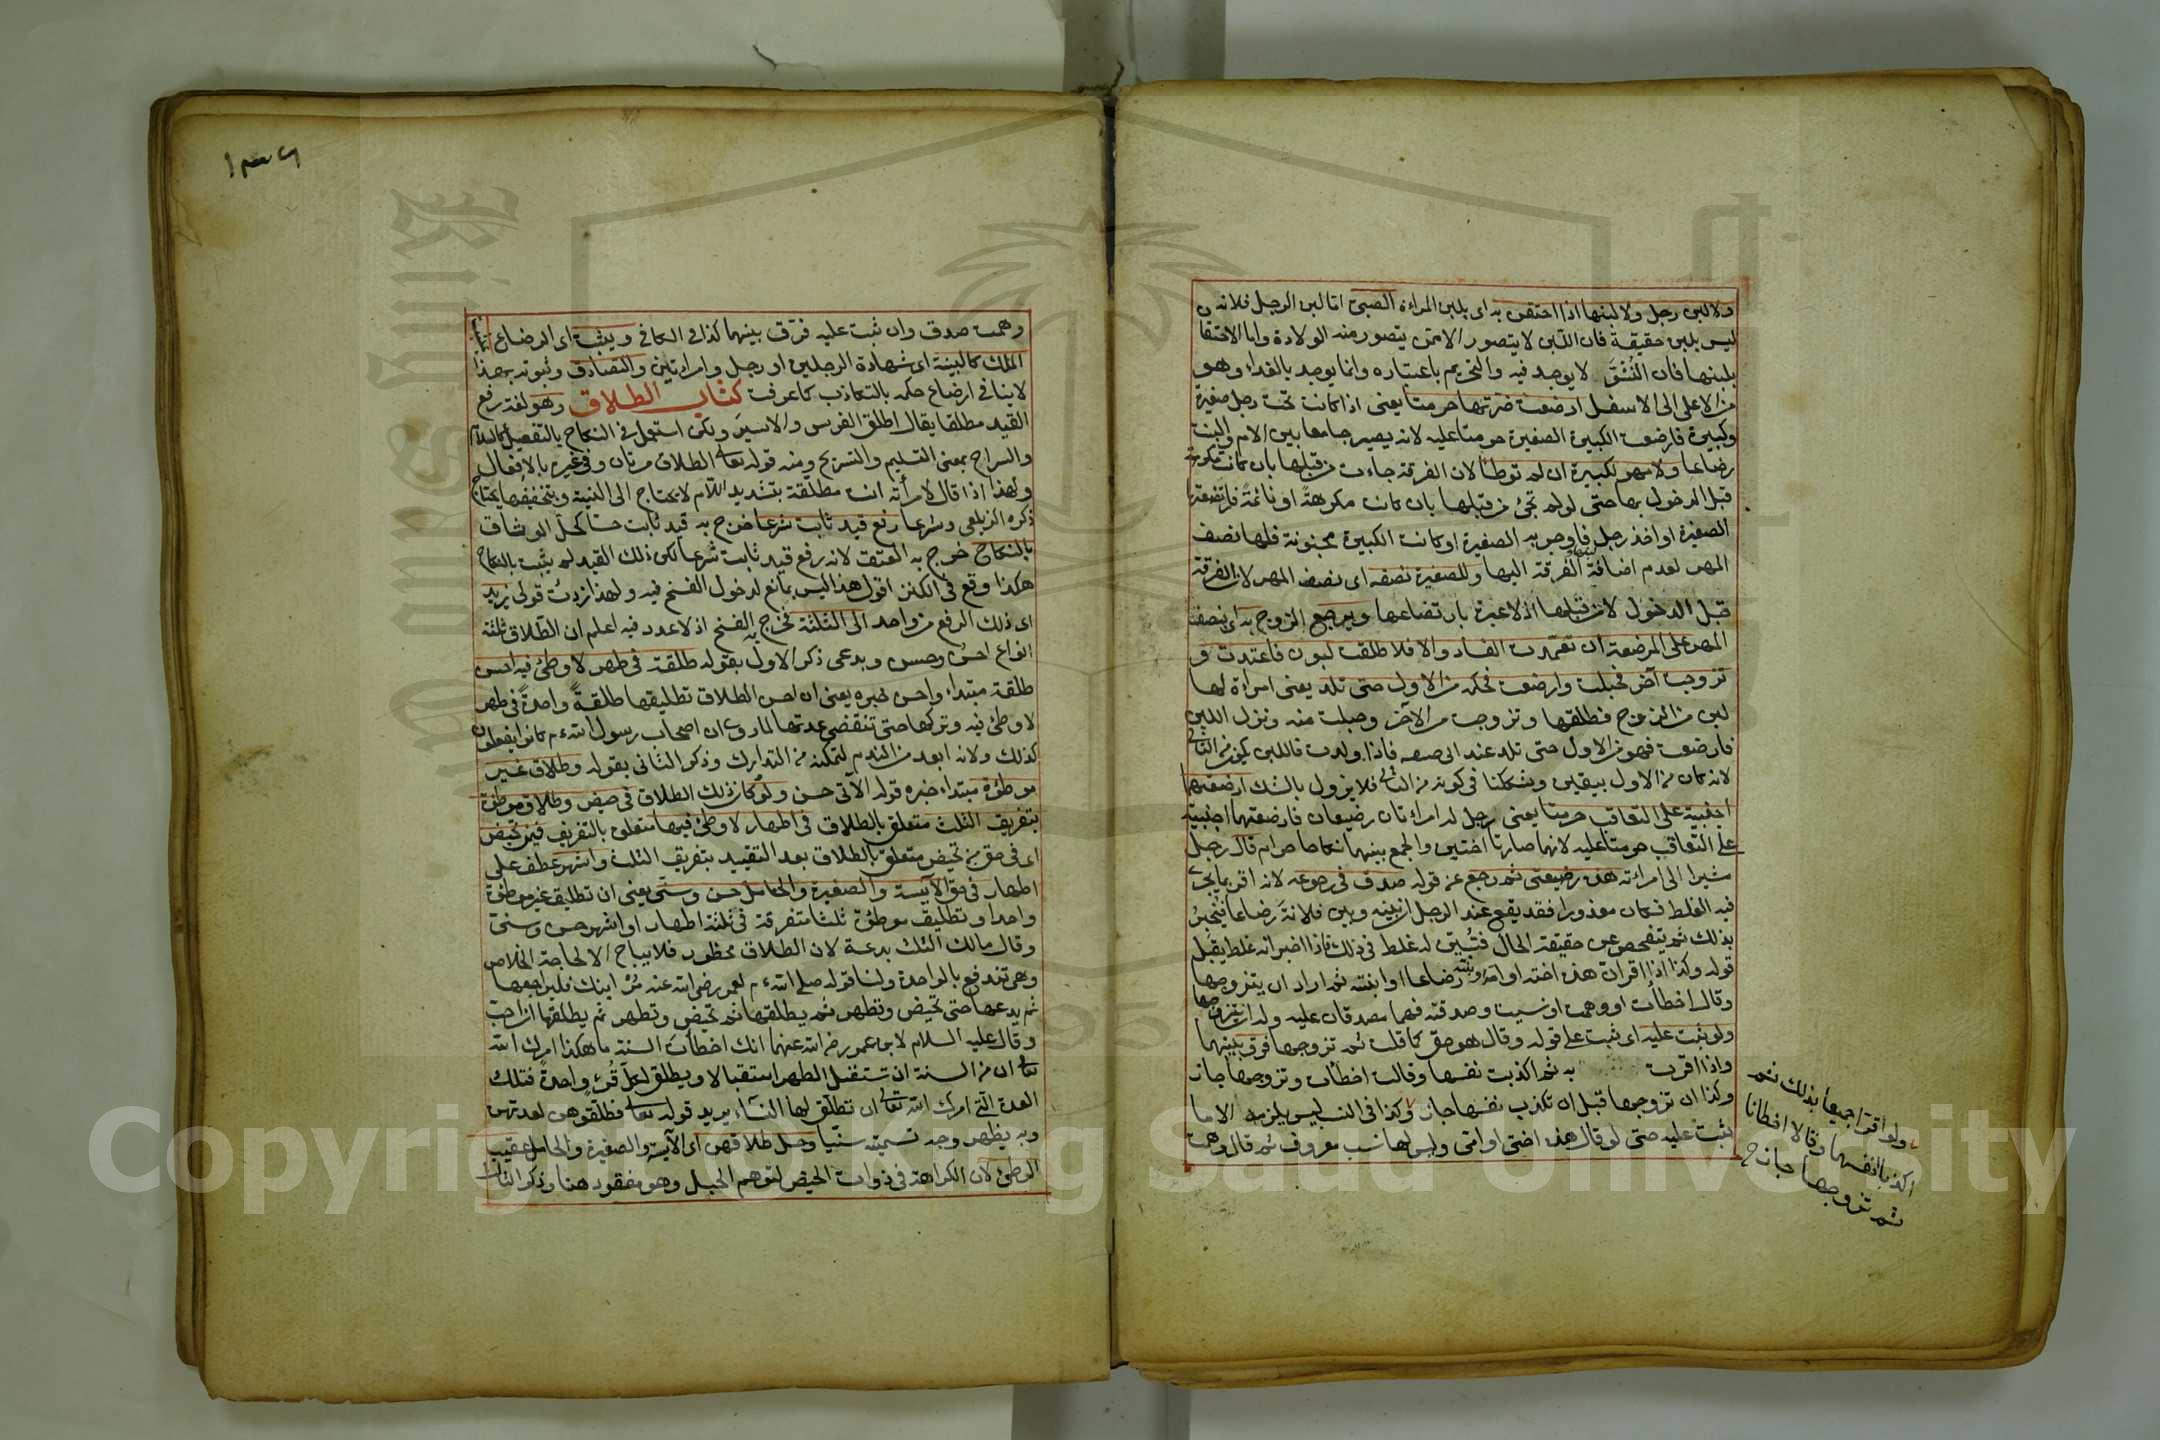 ولا لبن رجل ولا لبنها اذا احتقن به اى بلبن المراءة الصبى اما لبن الرجل فلانه
ليس بلبن حقيقة فان اللبن لا يتصور الا ممن يتصور منه الولادة واما الاحتقا
بلبنها فان النشو لا يوجد فيه والتحريم باعتباره وانما يوجد بالغداء وهو
من الاعلى الى الاسفل ارضعت ضرتها حرمتا يعنى اذا كانت تحت رجل صغيرة
وكبيرة فارضعت الكبيرة الصغيرة حرمتا عليه لانه يصير جامعا بين الام والبنت
رضاعا ولا مهر لكبيرة ان لم توطأ لان الفرقة جاءت من قبلها
قبل الدخول بها حتى لو لم تجئ من قبلها بان كانت مكرهة او نائمة فارتضعتها
الصغيرة او اخذ رجل فاوجر به الصغيرة او كانت الكبيرة مجنونة فلها نصف
المهر لعدم اضافة الفرقة اليها وللصغيرة نصفه اى نصف المهر لان الفرقة
قبل الدخول لا من قبلها اذ لا عبرة بارتضاعها ويرجع الزوج به اى بنصف
المهر على المرضعة ان تعمدت الفساد والا فلا طلقت لبون فاعتدت و
تزوجت آخر فحبلت وارضعت فحكمه من الاول حتى تلد يعنى امراة لها
لبن من الزوج فطلقها وتزوجت من الآخر وحبلت منه ونزل اللبن
فارضعت فهو من الاول حتى تلد عند ابى حنيفه فاذا ولدت فاللبن يكون من الثانى
لانه كان من الاول بيقين وشككنا فى كونه من الثانى فلا يزول بالشك ارضعتهما
اجنبية على التعاقب حرمتا يعنى رجل له امراءتان رضيعتان فارضعتهما اجنبية
على التعاقب حرمتا عليه لانهما صارتا اختين والجمع بينهما نكاحا حرام قال رجل
مشيرا الى امراءته هذه رضيعتى ثم رجع عن قوله صدق فى رجوعه لانه اقر بما يجرى
فيه الغلط فكان معذورا فقد يقع عند الرجل ان بينه وبين فلانة رضاعا فيخبر
بذلك ثم يتفحص عن حقيقة الحال فتبين له غلط فى ذلك فاذا اخبر انه غلط يقبل
قوله وكذا اذا اقر ان هذه اخته او امه رضاعا او ابنته ثم اراد ان يتزوجها
وقال اخطأت او وهمت او نسيت وصدقته فهما مصدقان عليه وله ان يتزوجها
ولو ثبت عليه اى ثبت على قوله وقال هو حق كما قلت ثم تزوجها فرق بينهما
واذا اقرت به ثم اكذبت نفسها وقالت اخطأت وتزوجها جاز
وكذا ان تزوجها قبل ان تكذب نفسها جاز وكذا فى النسب ليس يلزمه الا ما
يثبت عليه حتى لو قال هذه اختى او امى وليس لها نسب معروف ثم قال وهمت
ولو اقرا جميعا بذلك ثم
اكذبا انفسهما وقالا اخطانا
ثم تزوجها جاز
وهمت صدق وان ثبت عليه فرق بينهما كذا فى الكافى ويثبت اى الرضاع
الملك كالبينة اى شهادة الرجلين او رجل وامراءتين والتصادق وثبوته بهذا
لا ينافى ارتفاع حكمه بالتكاذب كما عرفت كتاب الطلاق وهو لغة رفع
القيد مطلقا يقال اطلق الفرس والاسير ولكن استعمل فى النكاح بالتفعيل كالسلام
والسراج بمعنى التسليم والتسريح ومنه قوله تعالى الطلاق مرتان وفى غيره بالافعال
ولهذا اذا قال لامرأته انت مطلقة بتشديد اللام لا يحتاج الى النية وبتخفيفها يحتاج
ذكره الزيلعى وشرعا رفع قيد ثابت شرعا خرج به قيد ثابت حسا كحل الوثاق
بالنكاح خرج به العتق لانه رفع قيد ثابت شرعا لكن ذلك القيد لم يثبت بالنكاح
هكذا وقع فى الكنز اقول هذا ليس بمانع لدخول الفسخ فيه ولهذا زدت قولى يزيد
اى ذلك الرفع من واحد الى الثلثة فخرج به الفسخ اذ لا عدد فيه اعلم ان الطلاق ثلثة
انواع احسن وحسن وبدعى ذكر الاول بقوله طلقة فى طهر لا وطئ فيه احسن
طلقة مبتداء واحسن خبره يعنى ان احسن الطلاق تطليقها طلقة واحدة فى طهر
لا وطئ فيه وتركها حتى تنقضى عدتها لما روى ان اصحاب رسول الله ءم كانوا يفعلون
كذلك ولانه ابعد من الندم لتمكنه من التدارك وذكر الثانى بقوله وطلاق غير
موطوءة مبتداء خبره قوله الآتى حسن ولو كان ذلك الطلاق فى حيض وطلاق موطوءة
بتفريق الثلث متعلق بالطلاق فى اطهار لا وطئ فيها متعلق بالتفريق فيمن تحيض
اى فى حق من تحيض متعلق بالطلاق بعد التقييد بتفريق الثلث واشهر عطف على
اطهار فى حق الآيسة والصغيرة والحامل حسن وسنى يعنى ان تطليق غير موطوءة
واحدا وتطليق موطوءة ثلثا متفرقة فى ثلثة اطهار او اشهر حسن وسنى
وقال مالك الثلث بدعة لان الطلاق محظور فلا يباح الا لحاجة الخلاص
وهى تندفع بالواحدة ولنا قوله صلى الله ءم لعمر رضى الله عنه مر ابنك فليراجعها
ثم يدعها حتى تحيض وتطهر ثم يطلقها ثم تحيض وتطهر ثم يطلقها ان احب
وقال عليه السلام لابن عمر رضى الله عنهما انك اخطأت السنة ما هكذا امرك الله
تعالى ان من السنة ان تستقبل الطهر استقبالا ويطلق لكل قرء واحدة فتلك
العدة التى امرك الله تعالى ان تطلق لها النساء يريد قوله تعالى فطلقوهن لعدتهن
وبه يظهر وجه تسميته سنيا وحل طلاقهن اى الآيسة والصغيرة والحامل عقيب
الوطئ لان الكراهة فى ذوات الحيض لتوهم الحبل وهو مفقود هنا وذكر الثالث
Copyright © King Saud University